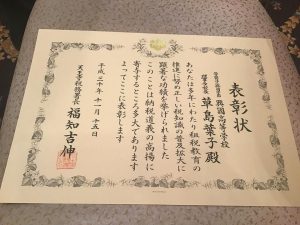 表彰状
興國高等学校
草島葉子 殿
あなたは多年にわたり租税教育の
推進に努め正しい税知識の普及拡大に
顕著な功績を挙げられました
このことは納税道義の高揚に
寄与するところ多大であります
よってここに表彰します
平成三十年十一月十五日
天王寺税務署長 福知吉伸